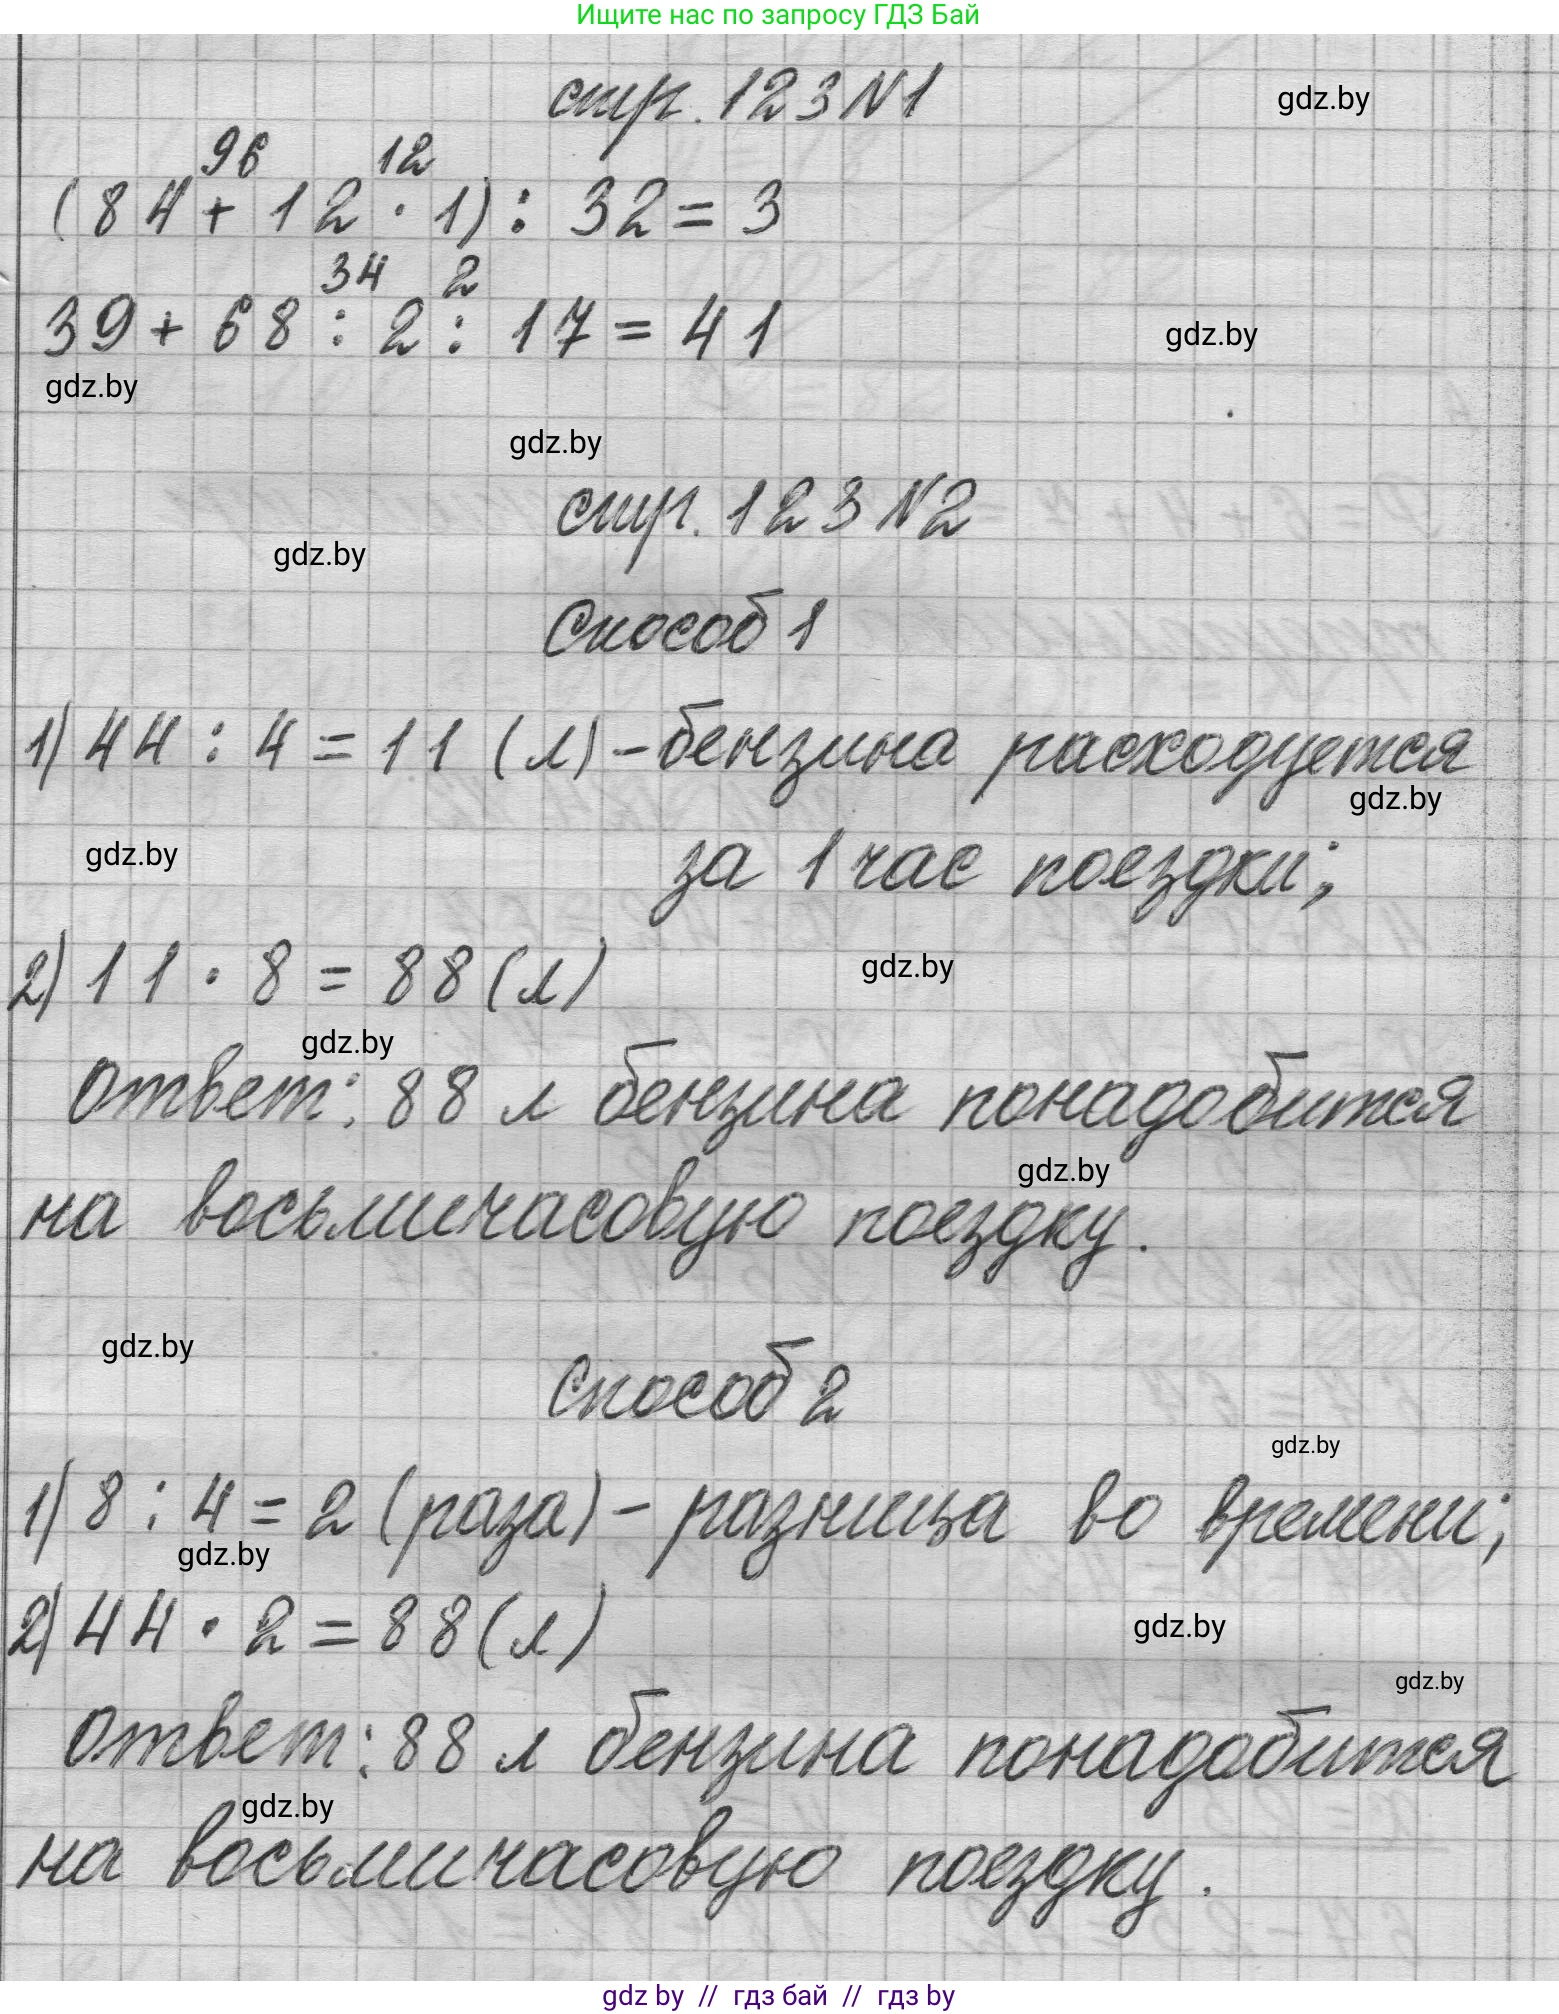 Ищите нас по запросу ГДЗ Бай
стр. 123 N1
gdz.by
96 12
(84 + 12 · 1) : 32 = 3
34 2
39 + 68 : 2 : 17 = 41
gdz.by
gdz.by
gdz.by
стр. 123 N2
gdz.by
Способ 1
1) 44 : 4 = 11 (л) - бензина расходуется
gdz.by
за 1 час поездки;
gdz.by
2) 11 · 8 = 88 (л)
gdz.by
gdz.by
Ответ: 88 л бензина понадобится
gdz.by
на восьмичасовую поездку.
gdz.by
Способ 2
gdz.by
1) 8 : 4 = 2 (раза) - разница во времени;
gdz.by
2) 44 · 2 = 88 (л)
gdz.by
gdz.by
Ответ: 88 л бензина понадобится
gdz.by
на восьмичасовую поездку.
gdz by // гдз бай // гдз by